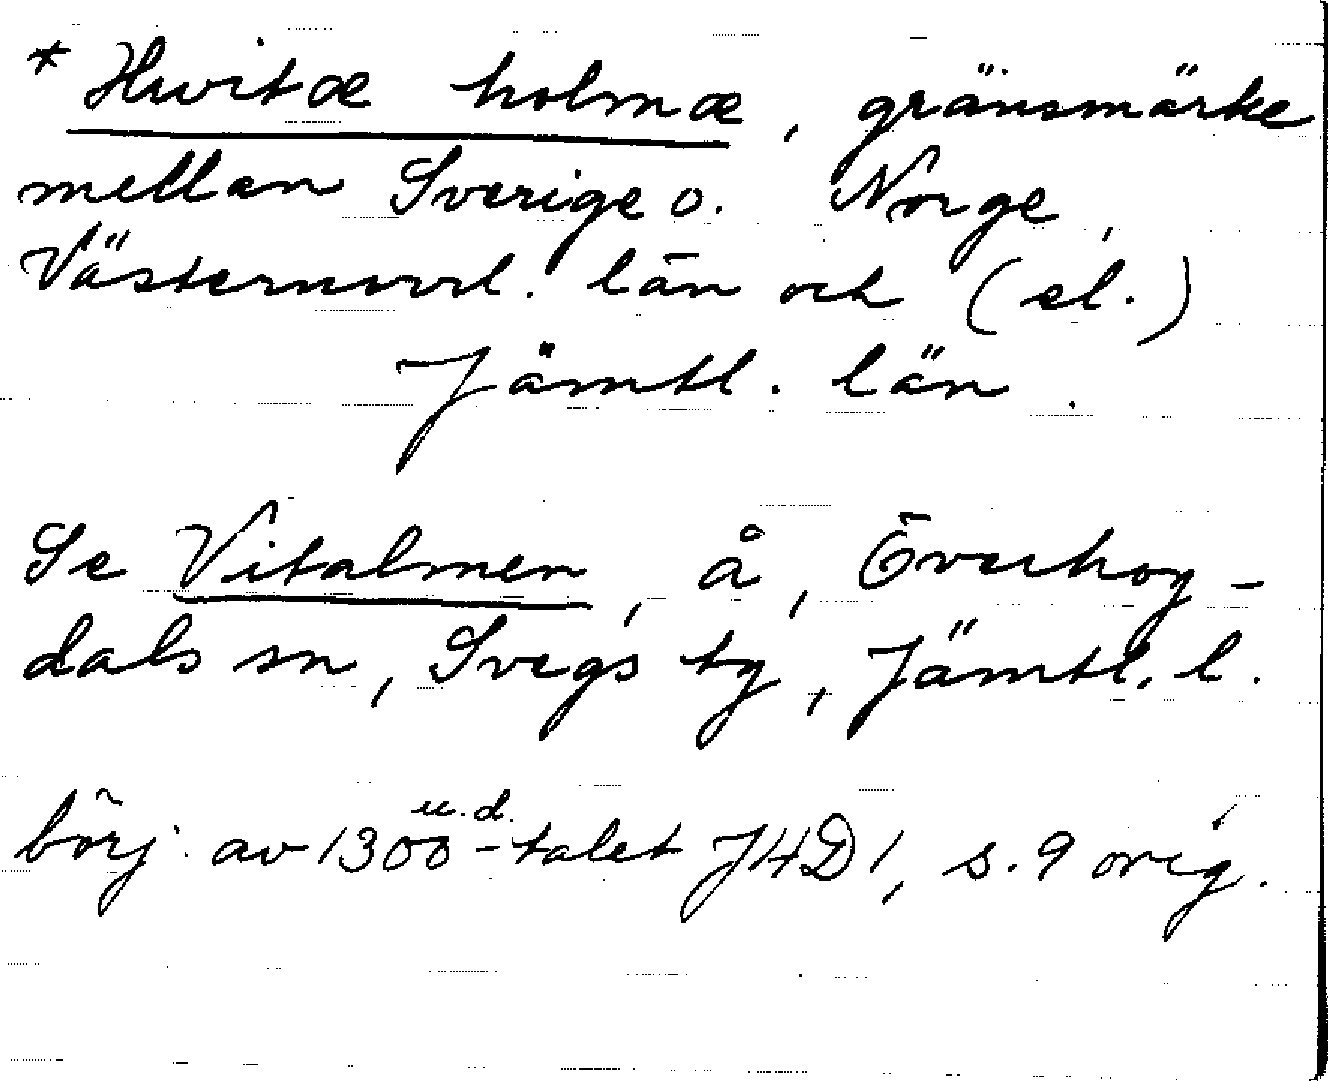 * Hwitæ holmæ, gränsmärke
mellan Sverige o. Norge,
Västernorrl. län och (el.)
Jämtl. län.
Se Vitalmen, å, Överhog-
dals sn, Svegs tg, Jämtl. l.
u.d.
börj. av 1300-talet JHD 1, s. 9 orig.